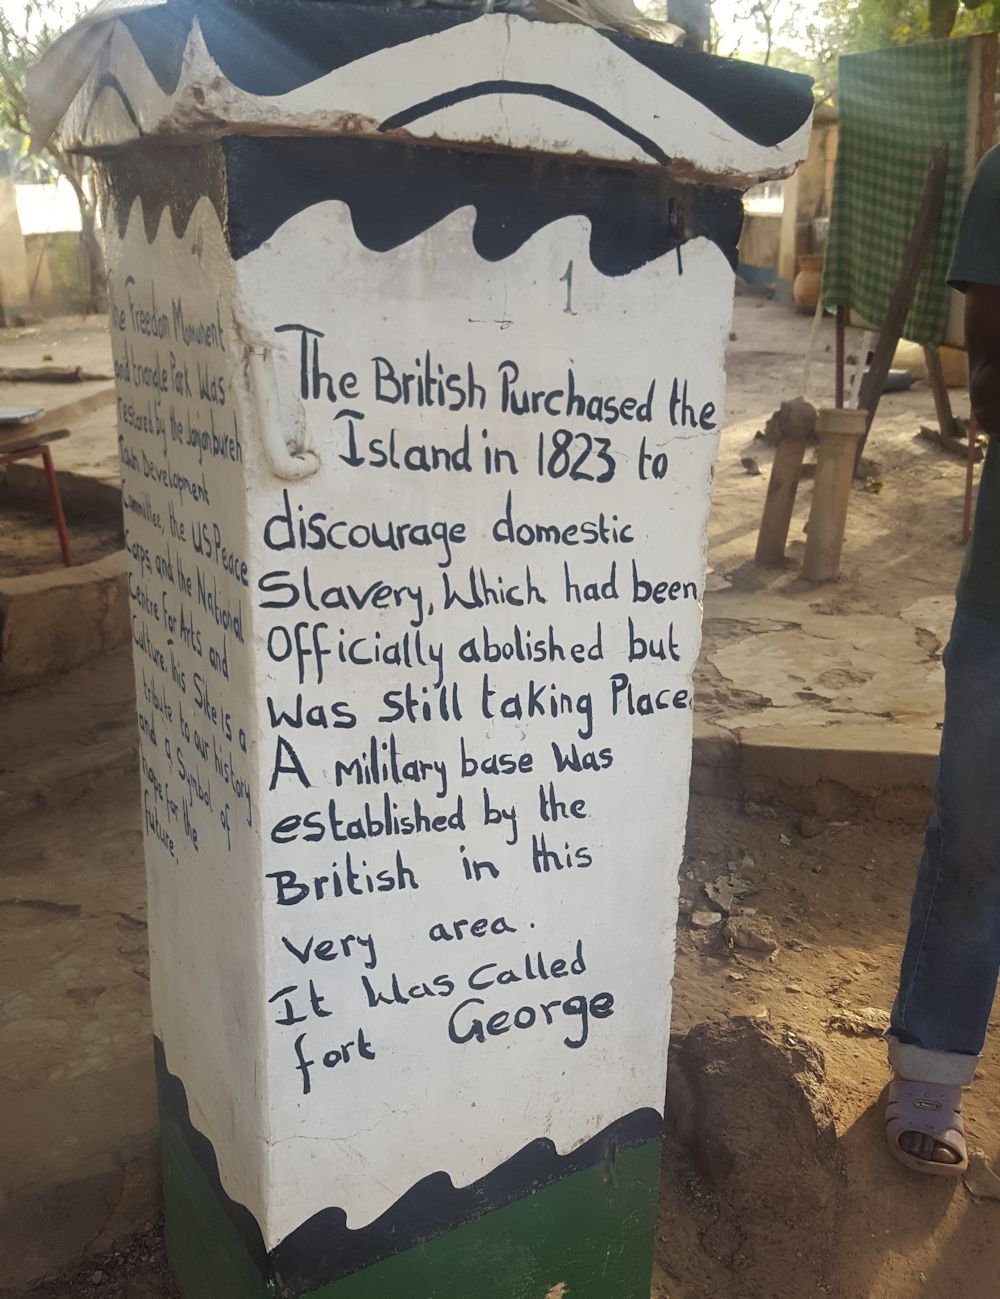 The Freedom Monument
and triangle Park Was
restored by the Janjanbureh
Town Development
Committee, the US Peace
Corps and the National
Centre For Arts and
Culture. This Site is a
tribute to our history
and a Symbol of
hope for the
future
1
The British Purchased the
Island in 1823 to
discourage domestic
Slavery, Which had been
Officially abolished but
Was still taking Place.
A military base Was
established by the
British in this
very area.
It Was called
fort George